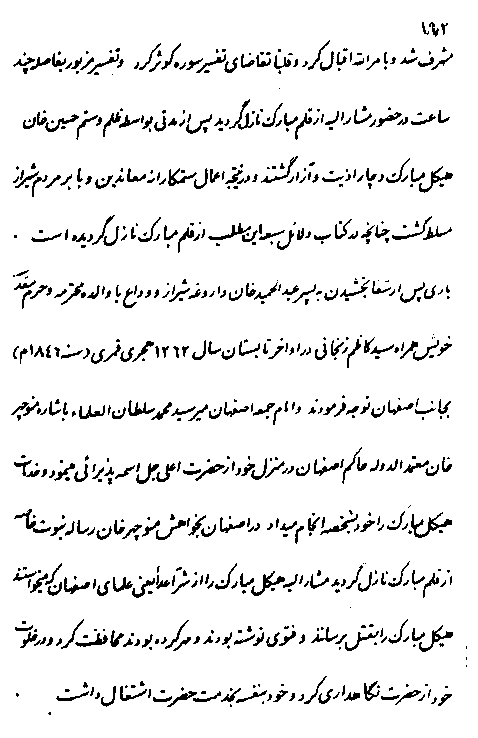 ۱۶۲
مشرف شد و بامرالله اقبال کرد و قلباً تقاضای تفسیر سوره کوثر کرد و تفسیر مزبور بفاصله چند
ساعت در حضور مشار الیه از قلم مبارک نازل گردید پس از مدتی بواسطه ظلم و ستم حسین خان
هیکل مبارک دچار اذیت و آزار گشتند و در نتیجه اعمال ستمکارانه معاندین وبا بر مردم شیراز
مسلط گشت چنانچه در کتاب دلائل سبعه این مطلب از قلم مبارک نازل گردیده است .
باری پس از شفا بخشیدن به پسر عبدالحمید خان داروغه شیراز و وداع با والده محترمه و حرم
خویش همراه سید کاظم زنجانی در اواخر تابستان سال ۱۲۶۲ هجری قمری (سنه ۱۸۴۶ م)
بجانب اصفهان توجه فرمودند و امام جمعه اصفهان میر سید محمد سلطان العلماء باشاره منوچهر
خان معتمد الدوله حاکم اصفهان در منزل خود از حضرت اعلی جل اسمه پذیرائی مینمود و خدمات
هیکل مبارک را خود بشخصه انجام میداد در اصفهان بخواهش منوچهر خان رساله نبوت خاصه
از قلم مبارک نازل گردید مشار الیه هیکل مبارک را از شر اعدا یعنی علمای اصفهان که میخواستند
هیکل مبارک را بقتل برسانند و فتوی نوشته بودند و مهر کرده بودند محافظت کرد و در خلوت
خود از حضرت نگاهداری کرد و خود بنفسه بخدمت حضرت اشتغال داشت .